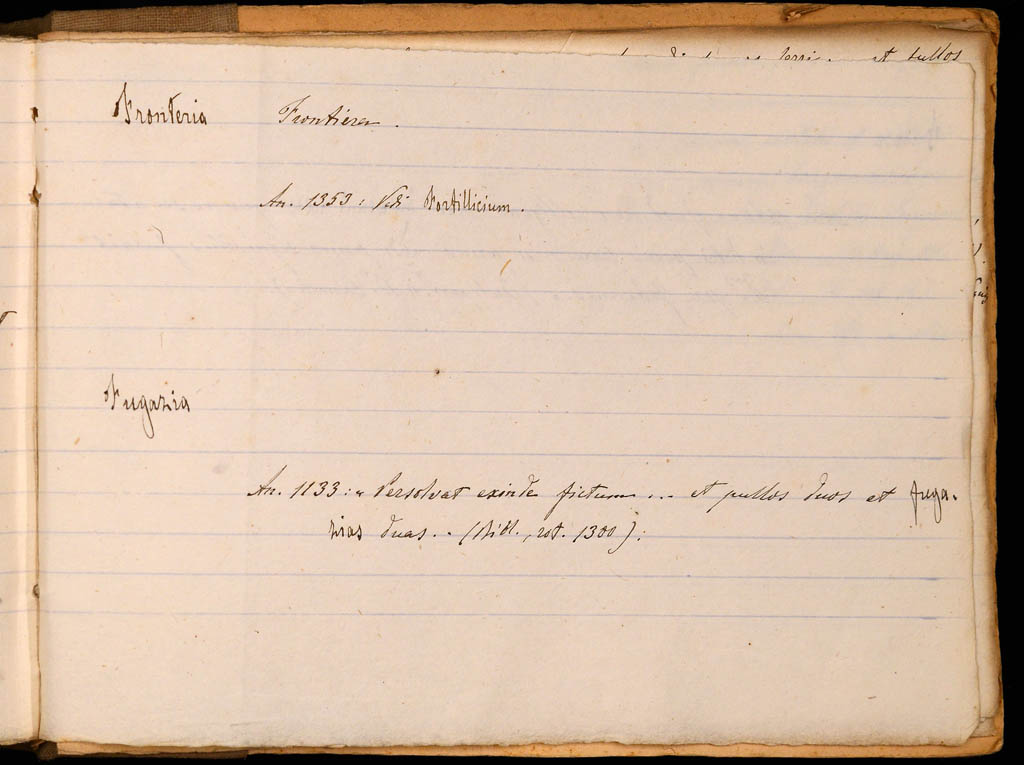 et pullos
Fronteria Frontiera.
An. 1353: Vedi Fortillicium.
Fugazia
An. 1133: « Persolvat exinde fictum ... et pullos duos et fuga-
zias duas.. ( , rot. 1300).